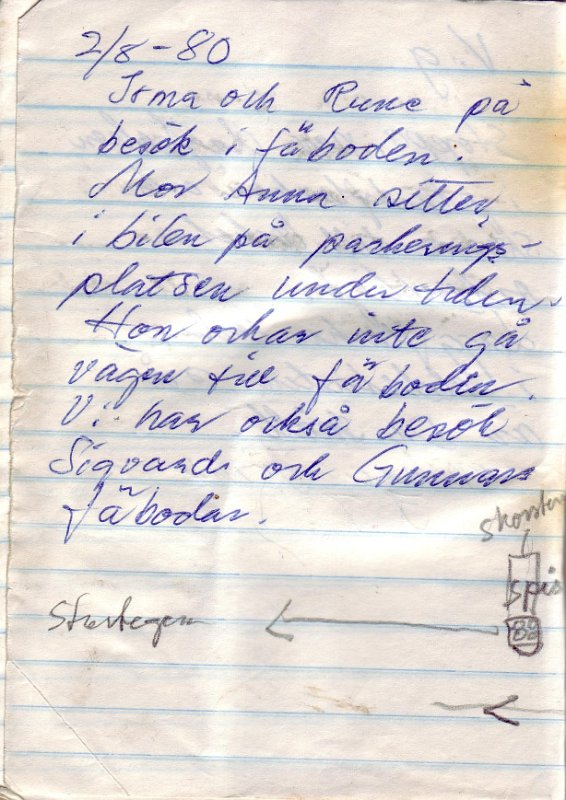 2/8-80
Irma och Rune på
besök i fäboden.
Mor Anna sitter
i bilen på parkerings-
platsen under tiden.
Hon orkar inte gå
vägen till fäboden.
Vi har också besök
Sigvards och Gunnars
fäbodar.
skorsten
spis